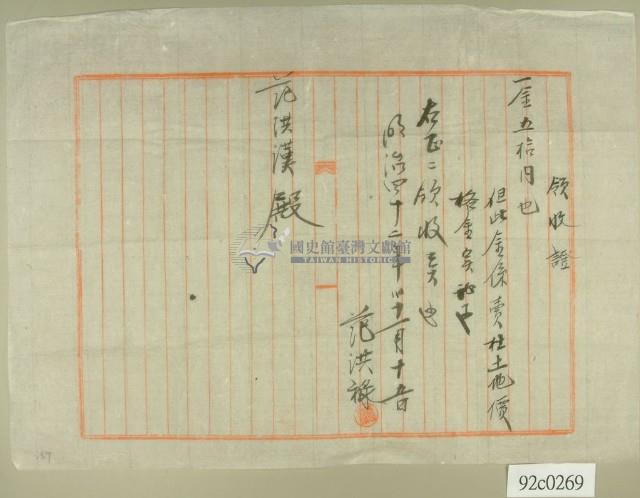 領收證
一金五拾円也
但此金係賣杜土地價
格金
右正ニ領收
明治四十二年十一月十五日
范洪祿
范洪漢殿
國史館臺灣文獻館
TAIWAN HISTORICA
92c0269